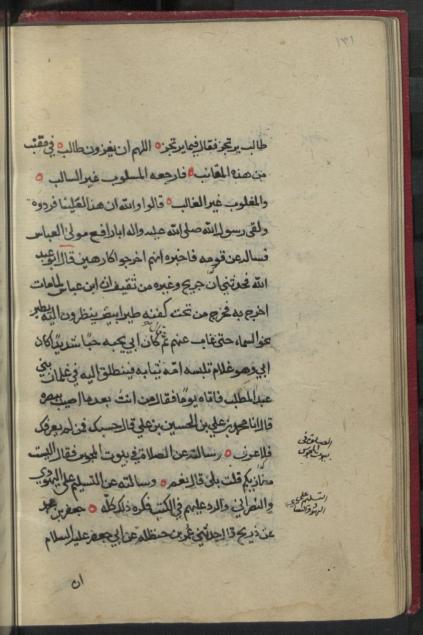 ١٣١
طالب يرتجز فقال فيما يرتجز اللهم ان يغزون طالب في مقنب
من هذه المقانب فارجعه المسلوب غير السالب
والمغلوب غير الغالب قالوا والله ان هذا لعلينا فردوه
ولقى رسول الله صلى الله عليه واله ابا رافع مولى العباس
فساله عن قومه فاخبره انهم اخرجوا كارهين قال ابو عبد
الله فحدثني ابن جريج وغيره من ثقيف ان ابن عباس لما مات
اخرج به فخرج من تحت كفنه طير ابيض ينظرون اليه يطير
نحو السماء حتى غاب عنهم ثم كان ابي يحبه حبا شديدا كان
ابي وهو غلام تلبسه امه ثيابه فينطلق اليه في غلمان بني
عبد المطلب فاتاه يوما فقال من انت بعد ما اصيب بصره
قال انا محمد بن علي بن الحسين بن علي قال حسبك فمن لم يعرفك
فلا عرف وسالته عن الصلاة في بيوت المجوس فقال اليست
مغازيكم قلت بلى قال نعم وسالته عن التسليم على اليهودي
والنصراني والرد عليهم في الكتب فكره ذلك كله جعفر بن
عن ذريح قال حدثني عمر بن حنظلة عن ابي جعفر عليه السلام
الصلوة في
بيوت المجوس
التسليم على
ان